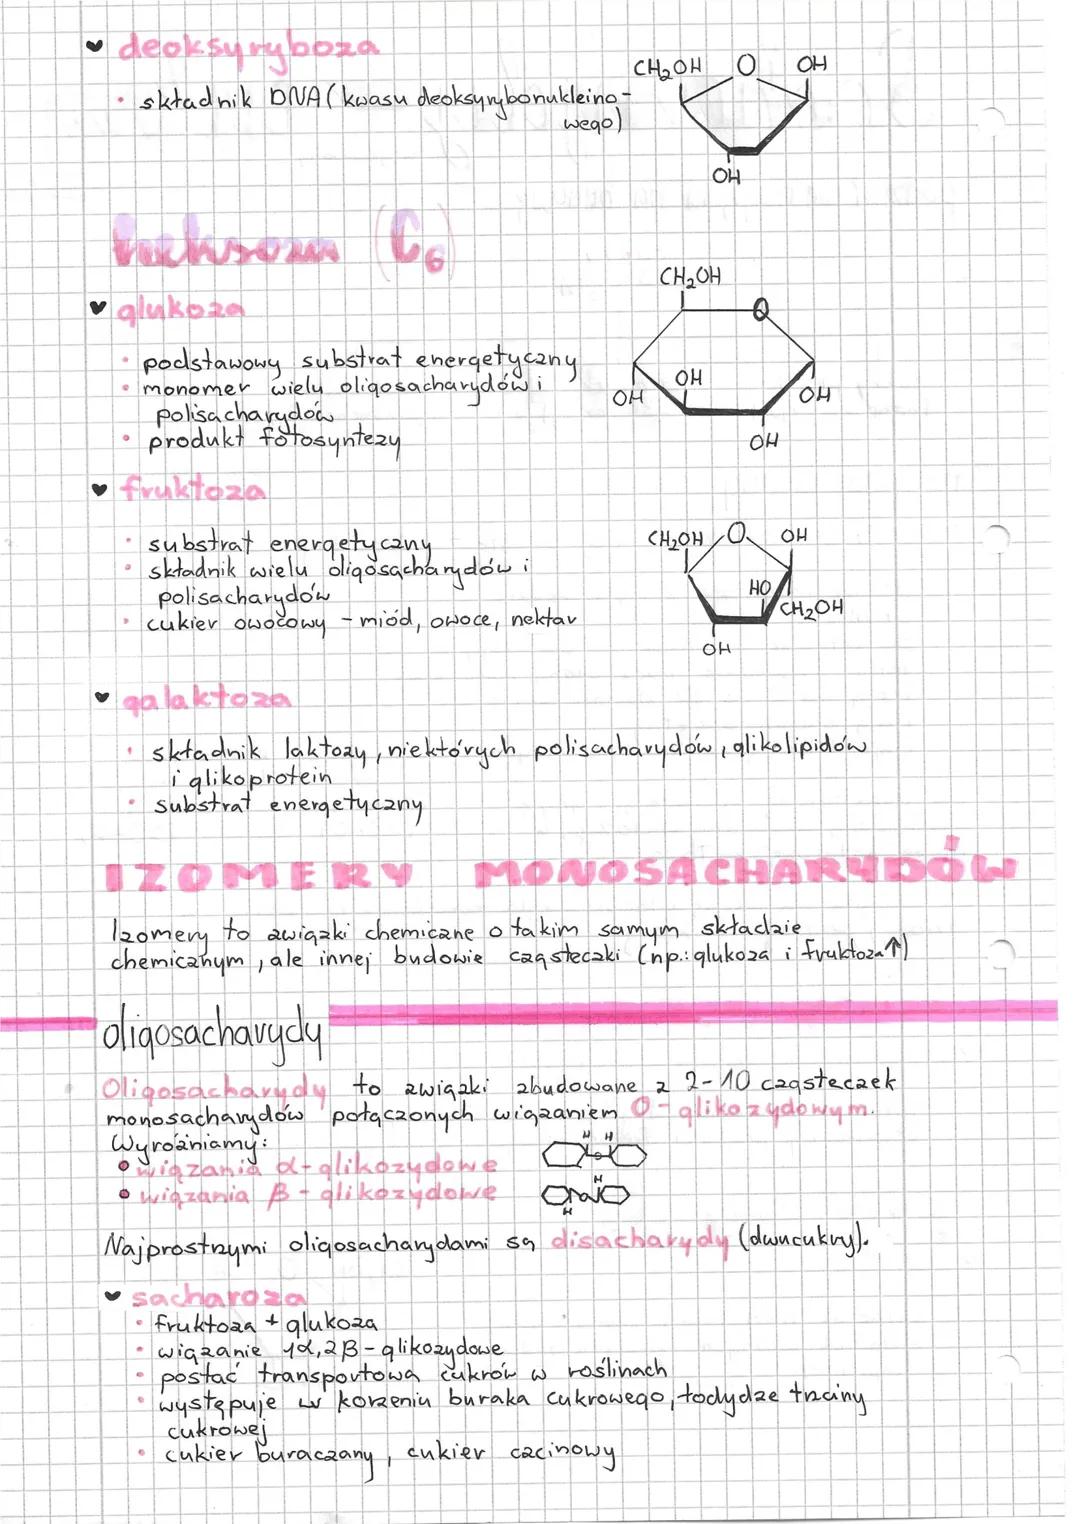 deoksyryboza
• składnik DNA (kwasu deoksyrybonukleino-
wego)
CH₂OH O OH
OH
heksozy (C₆)
glukoza
• podstawowy substrat energetyczny
• monomer wielu oligosacharydów i
polisacharydów
• produkt fotosyntezy
CH₂OH
O
OH OH OH
OH
fruktoza
• substrat energetyczny
• składnik wielu oligosacharydów i
polisacharydów
• cukier owocowy - miód, owoce, nektar
CH₂OH O OH
HO
CH₂OH
OH
galaktoza
• składnik laktozy, niektórych polisacharydów, glikolipidów
i glikoprotein
• substrat energetyczny
IZOMERY MONOSACHARYDÓW
Izomery to związki chemiczne o takim samym składzie
chemicznym, ale innej budowie cząsteczki (np.: glukoza i fruktoza↑)
oligosacharydy
Oligosacharydy to związki zbudowane z 2-10 cząsteczek
monosacharydów połączonych wiązaniem O-glikozydowym.
Wyróżniamy:
• wiązania α-glikozydowe
H H
O
• wiązania β-glikozydowe
H
H
Najprostszymi oligosacharydami są disacharydy (dwucukry).
sacharoza
• fruktoza + glukoza
• wiązanie 1α,2β-glikozydowe
• postać transportowa cukrów w roślinach
• występuje w korzeniu buraka cukrowego, łodydze trzciny
cukrowej
• cukier buraczany, cukier czcinowy